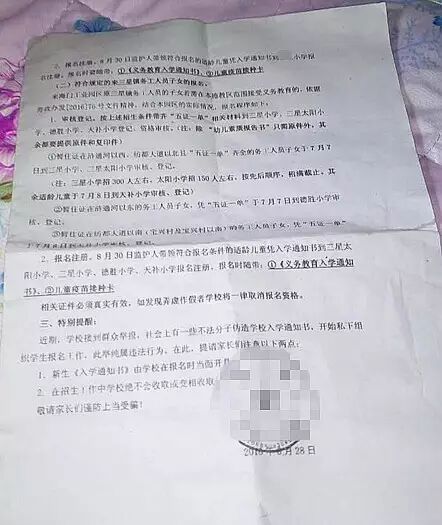 2、报名注册。8月30日监护人带领符合报名的适龄儿童凭入学通知书到 小学报
名注册，报名时须随带：①《义务教育入学通知书》、②儿童疫苗接种卡
（二）符合规定的来三星镇务工人员子女的报名。
来海门工业园区原三星镇务工人员的子女若需在本施教区范围接受义务教育的，依据
发[2016]76号文件精神，结合本园区的实际情况，报名程序如下：
1、审核登记。按上述招生条件带齐“五证一单”相关材料到三星小学、三星太阳
小学、德胜小学、天补小学登记、资格审核。（注：除“幼儿素质报告书”只需原件外，其
余都要提供原件和复印件）
①暂住证在浒通河以西、纺都大道以北且“五证一单”齐全的务工人员子女于7月7
日到三星小学、三星太阳小学审核、登记。
（注：三星小学招300人左右，太阳小学招150人左右，按先后顺序，招满截止，其
余适龄儿童于7月8日到天补小学审核、登记）
②暂住证在浒通河以东的务工人员子女，凭“五证一单”于7月7日到德胜小学审
核、登记。
③暂住证在纺都大道以南（宝兴村及宝兴村以南）的务工人员子女，凭“五证一单”
于7月8日到天补小学审核、登记。
2、报名注册。8月30日监护人带领符合报名条件的适龄儿童凭入学通知书到三星太
阳小学、三星小学、德胜小学、天补小学报名注册，报名时随带：①《义务教育入学通知
书》、②儿童疫苗接种卡
相关证件必须真实有效，如发现弄虚作假者学校将一律取消报名资格。
三、特别提醒：
近期，学校接到群众举报，社会上有一些不法分子伪造学校入学通知书，开始私下组
织学生报名工作，此举纯属违法行为。在此，提请家长们注意以下两点：
1、新生《入学通知书》由学校在报名时当面开具
2、在招生工作中学校绝不会收取或变相收取
敬请家长们谨防上当受骗！
2016年6月28日